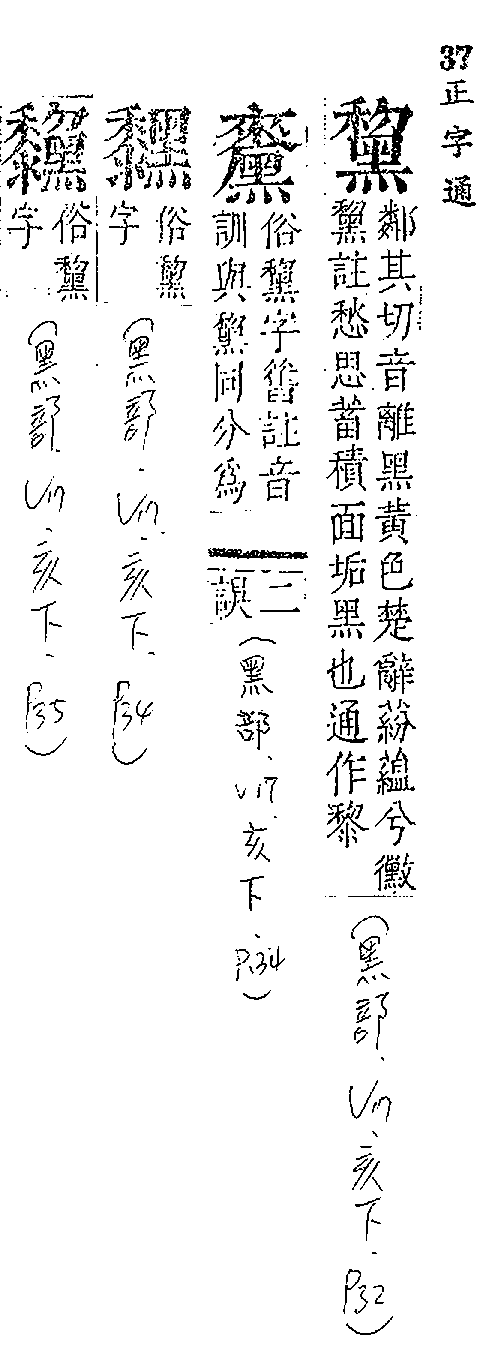 37 正字通
黧
鄰其切音離黑黃色楚辭蒶蘊兮黴
黧註愁思蓄積面垢黑也通作黎
(黑部.V17.亥下.P32)
俗黧字舊註音
訓與黧同分爲
二
誤
(黑部.V17.亥下.P.34)
俗黧
字
(黑部.V17.亥下.P34)
俗黧
字
(黑部.V17.亥下.P35)